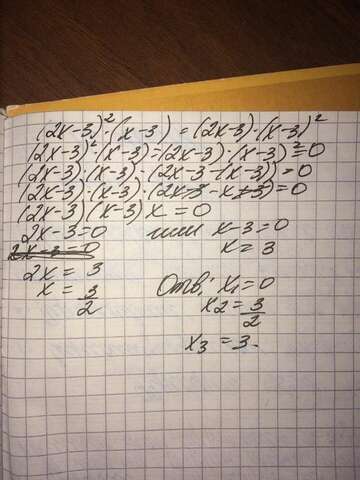 (2x-3)²·(x-3) = (2x-3)·(x-3)²
(2x-3)²·(x-3)=(2x-3)·(x-3)²=0
(2x-3)·(x-3)·(2x-3-(x-3))=0
(2x-3)·(x-3)·(2x-3-x+3)=0
(2x-3)(x-3)x=0
2x-3=0 или x-3=0
2x-3=0 x=3
2x=3
x=3/2
Отв: x₁=0
x₂=3/2
x₃=3.